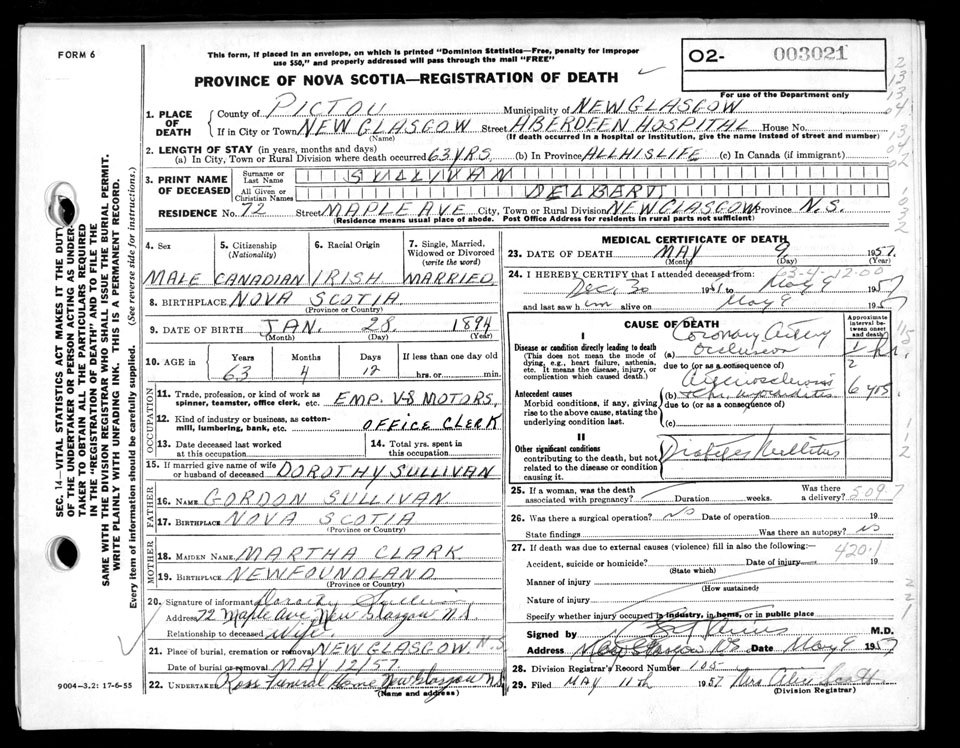 FORM 6
This form, if placed in an envelope, on which is printed "Dominion Statistics—Free, penalty for improper
use $50," and properly addressed will pass through the mail "FREE"
PROVINCE OF NOVA SCOTIA—REGISTRATION OF DEATH
O2- 003021
For use of the Department only
1. PLACE OF DEATH
County of PICTOU Municipality of NEW GLASGOW
If in City or Town NEW GLASGOW Street ABERDEEN HOSPITAL House No.
(Name) (If death occurred in a hospital or institution, give the name instead of street and number)
2. LENGTH OF STAY (in years, months and days)
(a) In City, Town or Rural Division where death occurred 63 YRS. (b) In Province ALL HIS LIFE (c) In Canada (if immigrant)
3. PRINT NAME OF DECEASED
Surname or Last Name SULLIVAN
All Given or Christian Names DELBERT
RESIDENCE No. 72 Street MAPLE AVE City, Town or Rural Division NEW GLASGOW Province N.S.
(Residence means usual place of abode. Post Office Address for residents in rural parts not sufficient)
SEC. 14—VITAL STATISTICS ACT MAKES IT THE DUTY
OF THE UNDERTAKER OR PERSON ACTING AS UNDER-
TAKER TO OBTAIN ALL THE PARTICULARS REQUIRED
IN THE "REGISTRATION OF DEATH" AND TO FILE THE
SAME WITH THE DIVISION REGISTRAR WHO SHALL ISSUE THE BURIAL PERMIT.
WRITE PLAINLY WITH UNFADING INK. THIS IS A PERMANENT RECORD.
Every item of information should be carefully supplied. (See reverse side for instructions.)
4. Sex 5. Citizenship (Nationality) 6. Racial Origin 7. Single, Married, Widowed or Divorced (write the word)
MALE CANADIAN IRISH MARRIED
8. BIRTHPLACE NOVA SCOTIA
(Province or Country)
9. DATE OF BIRTH JAN. 28. 1894
(Month) (Day) (Year)
10. AGE in Years Months Days If less than one day old
63 4 12 hrs. or min.
OCCUPATION
11. Trade, profession, or kind of work as
spinner, teamster, office clerk, etc. EMP. V-8 MOTORS,
12. Kind of industry or business, as cotton-
mill, lumbering, bank, etc. OFFICE CLERK
13. Date deceased last worked
at this occupation
14. Total yrs. spent in
this occupation
15. If married give name of wife
or husband of deceased DOROTHY SULLIVAN
FATHER
16. NAME GORDON SULLIVAN
17. BIRTHPLACE NOVA SCOTIA
(Province or Country)
MOTHER
18. MAIDEN NAME MARTHA CLARK
19. BIRTHPLACE NEWFOUNDLAND
(Province or Country)
20. Signature of informant Dorothy Sullivan
Address 72 Maple Ave, New Glasgow N.S.
Relationship to deceased Wife.
21. Place of burial, cremation or removal NEW GLASGOW. N.S
Date of burial or removal MAY 12/57.
22. UNDERTAKER Ross Funeral Home New Glasgow N.S.
(Name and address)
9004-3.2: 17-6-55
MEDICAL CERTIFICATE OF DEATH
23. DATE OF DEATH MAY 9 1957
(Month) (Day) (Year)
63-4-12-00
24. I HEREBY CERTIFY that I attended deceased from:
Dec. 30 to May 9 1957
and last saw him alive on May 9 1957
CAUSE OF DEATH
Approximate interval between onset and death
I
Disease or condition directly leading to death
(This does not mean the mode of
dying, e.g., heart failure, asthenia,
etc. It means the disease, injury, or
complication which caused death.)
(a) Coronary Artery
occlusion
1 hr.
due to (or as a consequence of)
Antecedent causes
Morbid conditions, if any, giving
rise to the above cause, stating the
underlying condition last.
Arteriosclerosis
(b) 6 yrs.
due to (or as a consequence of)
(c)
II
Other significant conditions
contributing to the death, but not
related to the disease or condition
causing it.
Diabetes Mellitus
25. If a woman, was the death
associated with pregnancy? Duration weeks. Was there
a delivery?
509.7
26. Was there a surgical operation? No Date of operation 19
State findings Was there an autopsy? No
27. If death was due to external causes (violence) fill in also the following:—
420.1
Accident, suicide or homicide? Date of injury 19
(State which)
Manner of injury
(How sustained)
Nature of injury
Specify whether injury occurred in industry, in home, or in public place
Signed by M.D.
Address New Glasgow N.S. Date May 9 1957
28. Division Registrar's Record Number 105
29. Filed MAY 11th 1957 Mrs Alice Scott
(Division Registrar)